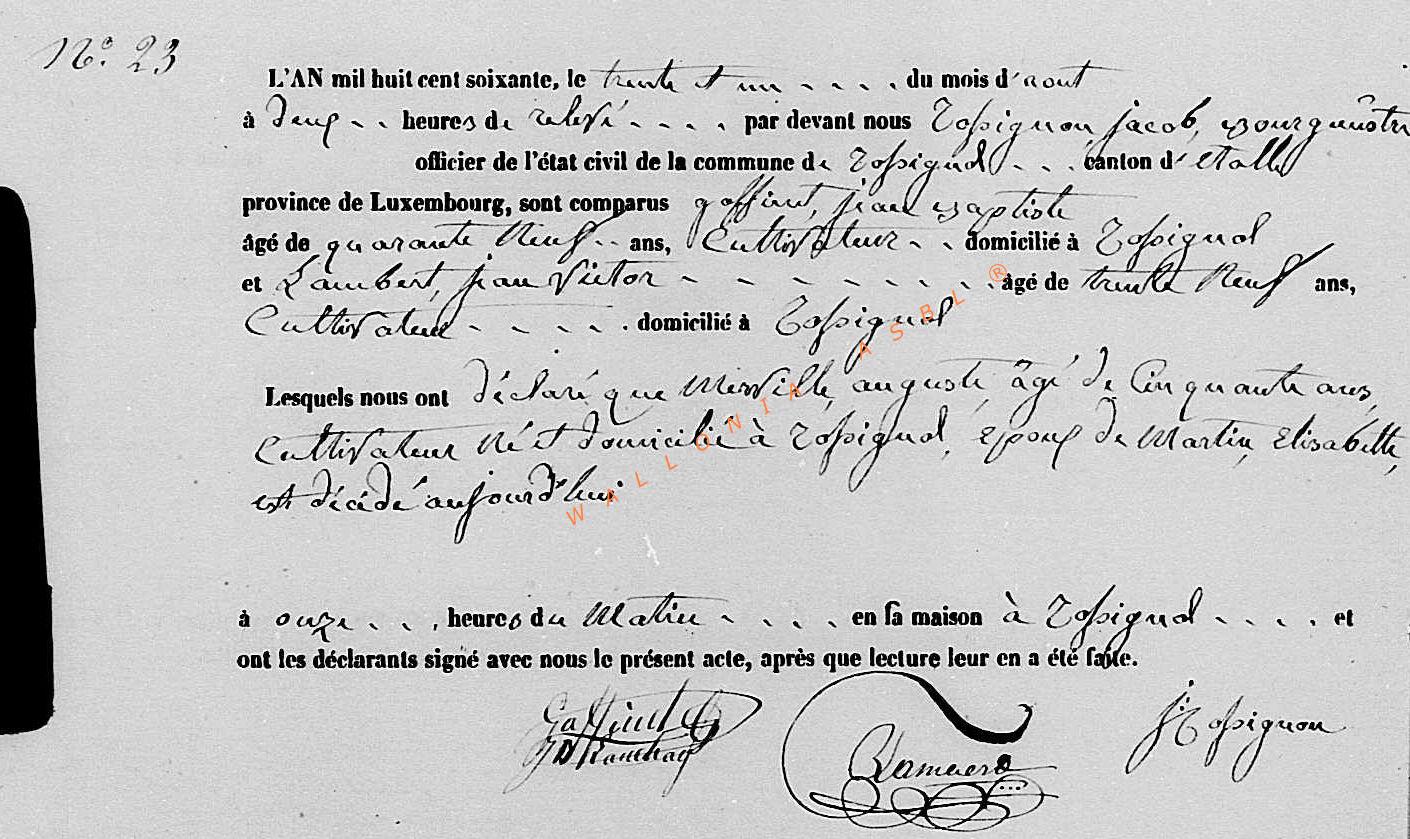 N.° 23
L'AN mil huit cent soixante, le trente et un du mois d'aout
à deux heures de relevé par devant nous Rossignon jacob, Bourgmestre
officier de l'état civil de la commune de Rossignol canton d'Etalle
province de Luxembourg, sont comparus goffinet, jean Baptiste
âgé de quarante Neuf ans, Cultivateur domicilié à Rossignol
et Lambert, jean Victor âgé de trente Neuf ans,
Cultivateur domicilié à Rossignol
Lesquels nous ont déclaré que Merville, auguste, âgé de Cinquante ans,
Cultivateur Né et domicilié à Rossignol, Epoux de Martin, Elisabette,
est décédé aujourd'hui
à onze heures du Matin en sa maison à Rossignol et
ont les déclarants signé avec nous le présent acte, après que lecture leur en a été faite.
Goffinet
J. Rossignon
WALLONIA ASBL ®